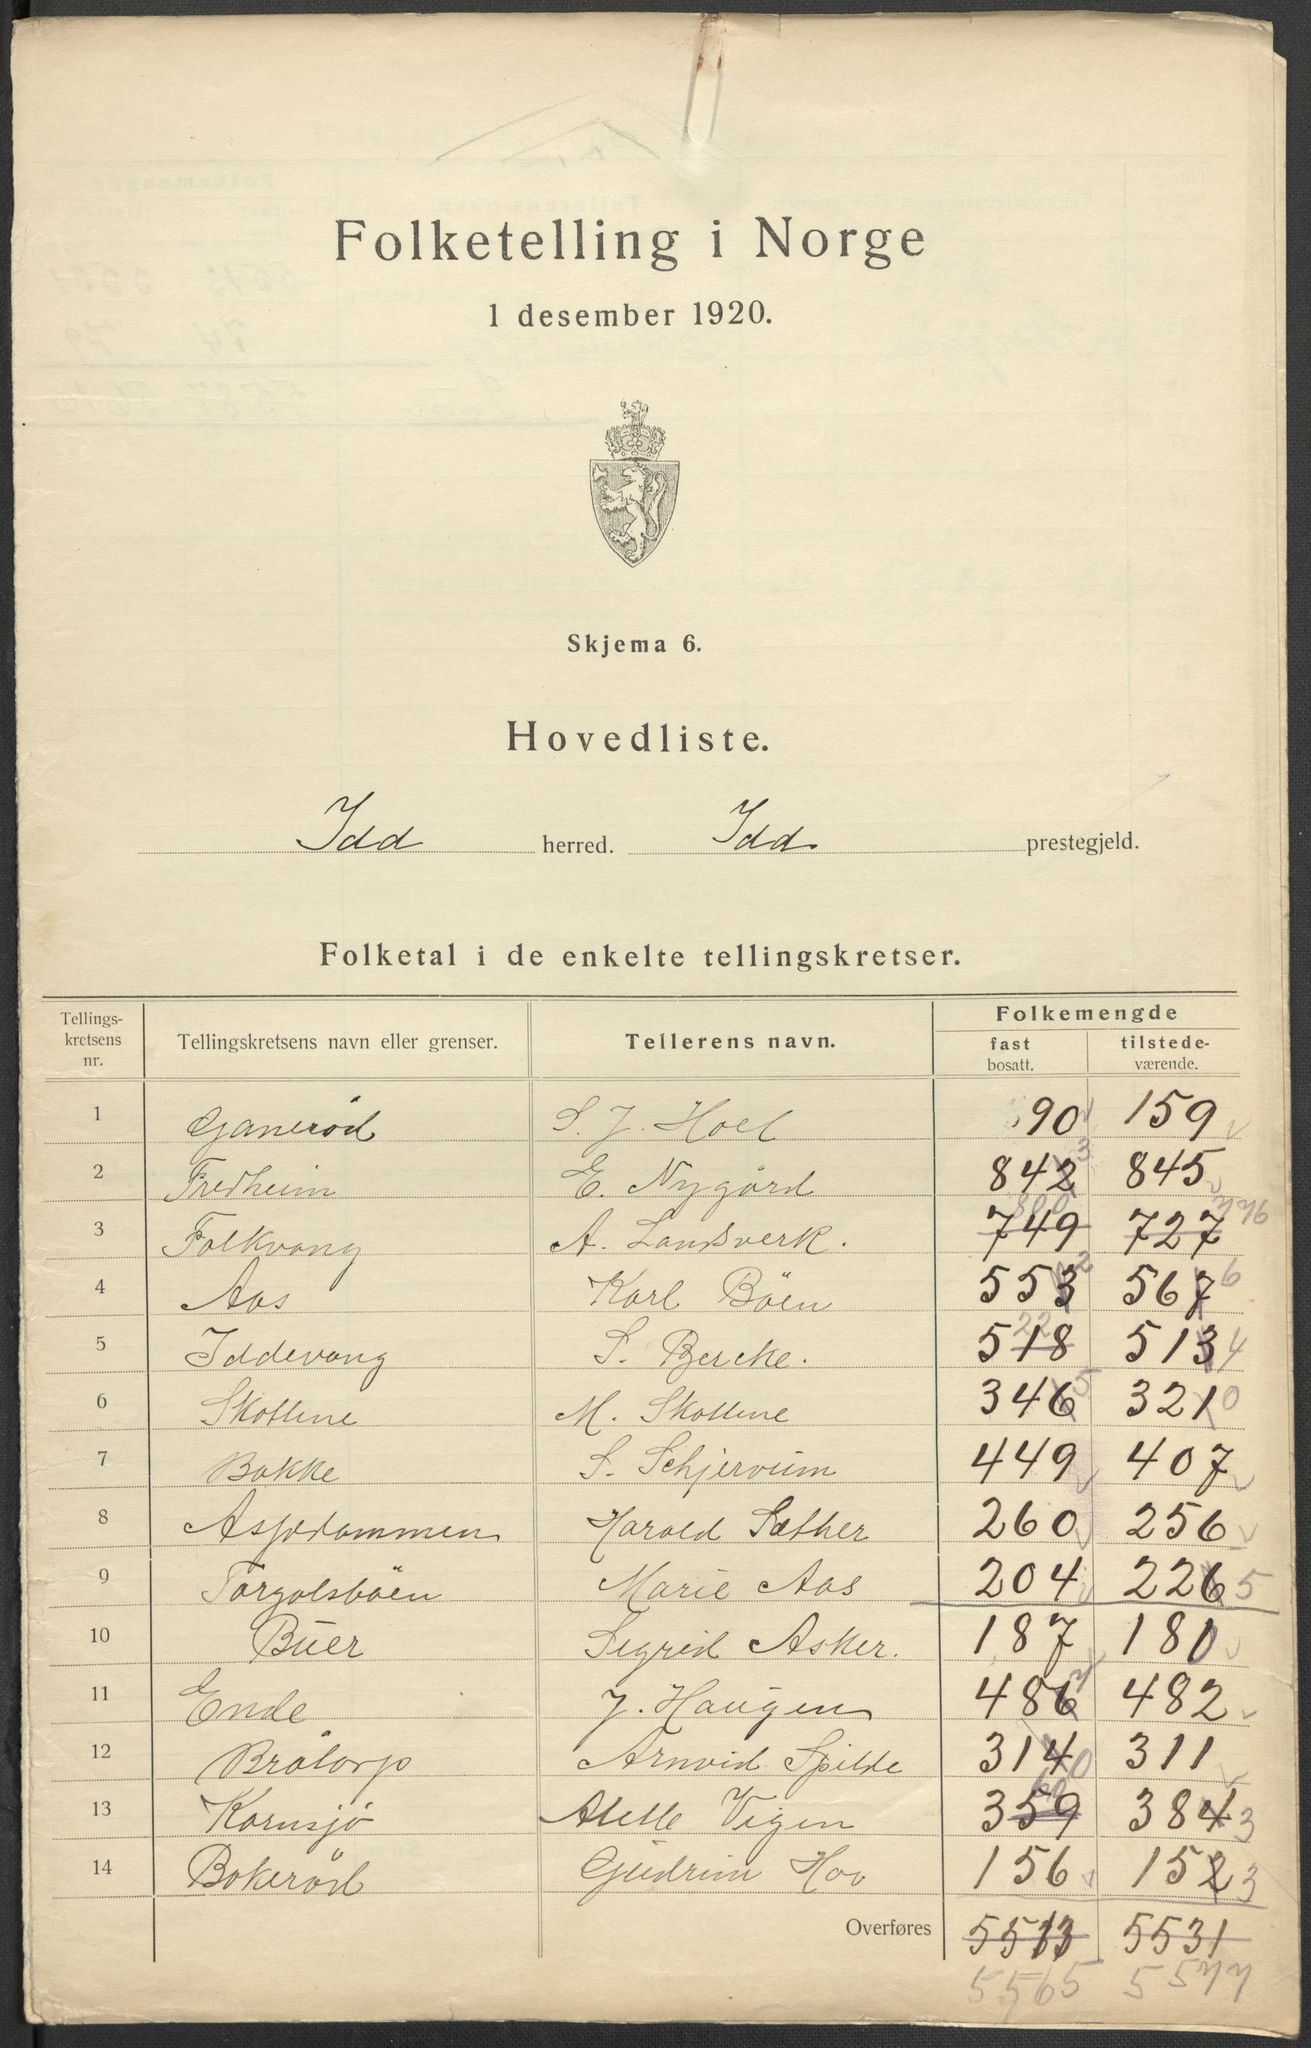 Folketelling i Norge
1 desember 1920.
Skjema 6.
Hovedliste.
Idd herred. Idd prestegjeld.
Folketal i de enkelte tellingskretser.
Tellingskretsens nr. Tellingskretsens navn eller grenser. Tellerens navn. Folkemengde
fast bosatt. tilstedeværende.
1 Ganerød S. J. Hoel 90 159
2 Fredheim E. Nygård 842 3 845
3 Folkvang A. Landsverk. 749 800 727 776
4 Aas Karl Böen 553 2 567 6
5 Iddevang S. Bercke. 518 22 513 4
6 Skottene M. Skottene 346 5 321 0
7 Bakke S. Schjervum 449 407
8 Aspedammen Harald Sæther 260 256
9 Torgalsböen Marie Aas 204 226 5
10 Buer Sigrid Asker. 187 181
11 Ende J. Haugen 486 7 482
12 Bråtorp Arnvid Spilde 314 0 311
13 Kornsjø Atelle Vigen 359 60 384 3
14 Bokerød Gudrun Hov 156 152 3
Overføres 5513 5531
5565 5577